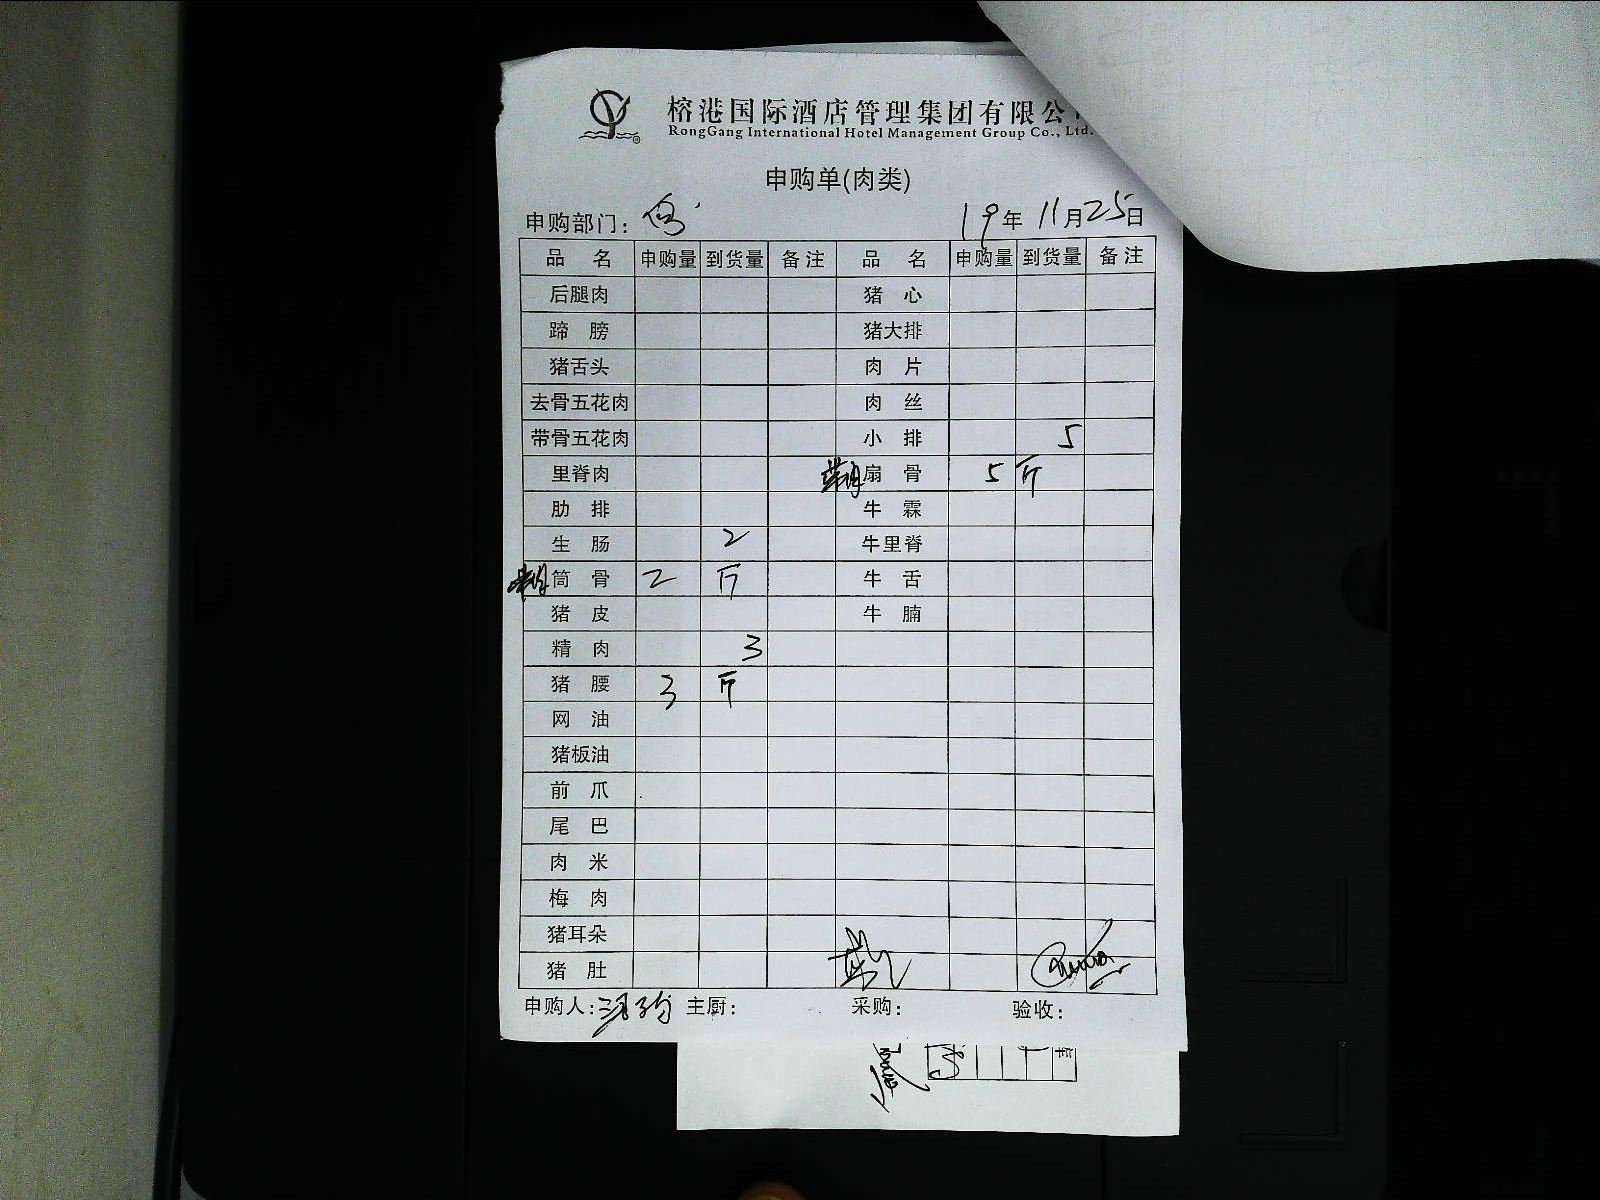 榕港国际酒店管理集团有限公
RongGang International Hotel Management Group Co., Ltd.
申购单(肉类)
申购部门: 19年 11月25日
品名 申购量 到货量 备注 品名 申购量 到货量 备注
后腿肉 猪心
蹄膀 猪大排
猪舌头 肉片
去骨五花肉 肉丝
带骨五花肉 小排 5
里脊肉 扇骨 5斤
肋排 牛霖
生肠 2 牛里脊
筒骨 2斤 牛舌
猪皮 牛腩
精肉 3
猪腰 3斤
网油
猪板油
前爪
尾巴
肉米
梅肉
猪耳朵
猪肚
申购人: 主厨: 采购: 验收: